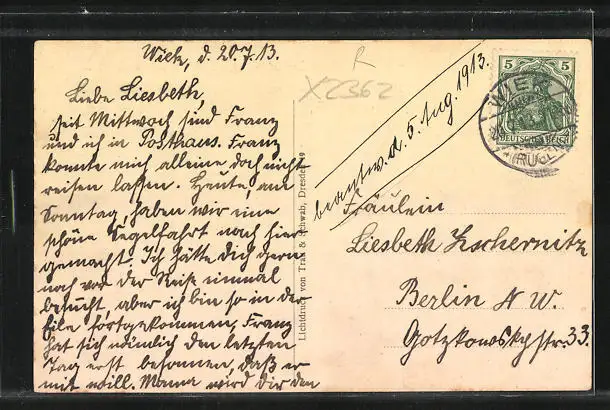 Wiek, d. 20.7.13.
Liebe Liesbeth,
seit Mittwoch sind Franz
und ich in Posthaus. Franz
konnte mich alleine doch nicht
reisen lassen. Heute, am
Sonntag, haben wir eine
schöne Segelfahrt nach hier
gemacht. Ich hätte Dich gern
noch vor der Reise einmal
besucht, aber ich bin so in der
Eile fortgekommen, Franz
hat sich nämlich den letzten
Tag erst besonnen, daß er
mit will. Mama wird Dir den
R
X2362
beantw. d. 5. Aug. 1913.
Lichtdruck von Trau & Schwab, Dresden 19
5 5
DEUTSCHES REICH
WIEK
(RÜG.)
Fräulein
Liesbeth Zschernitz
Berlin N W.
Gotzkowskystr. 33.